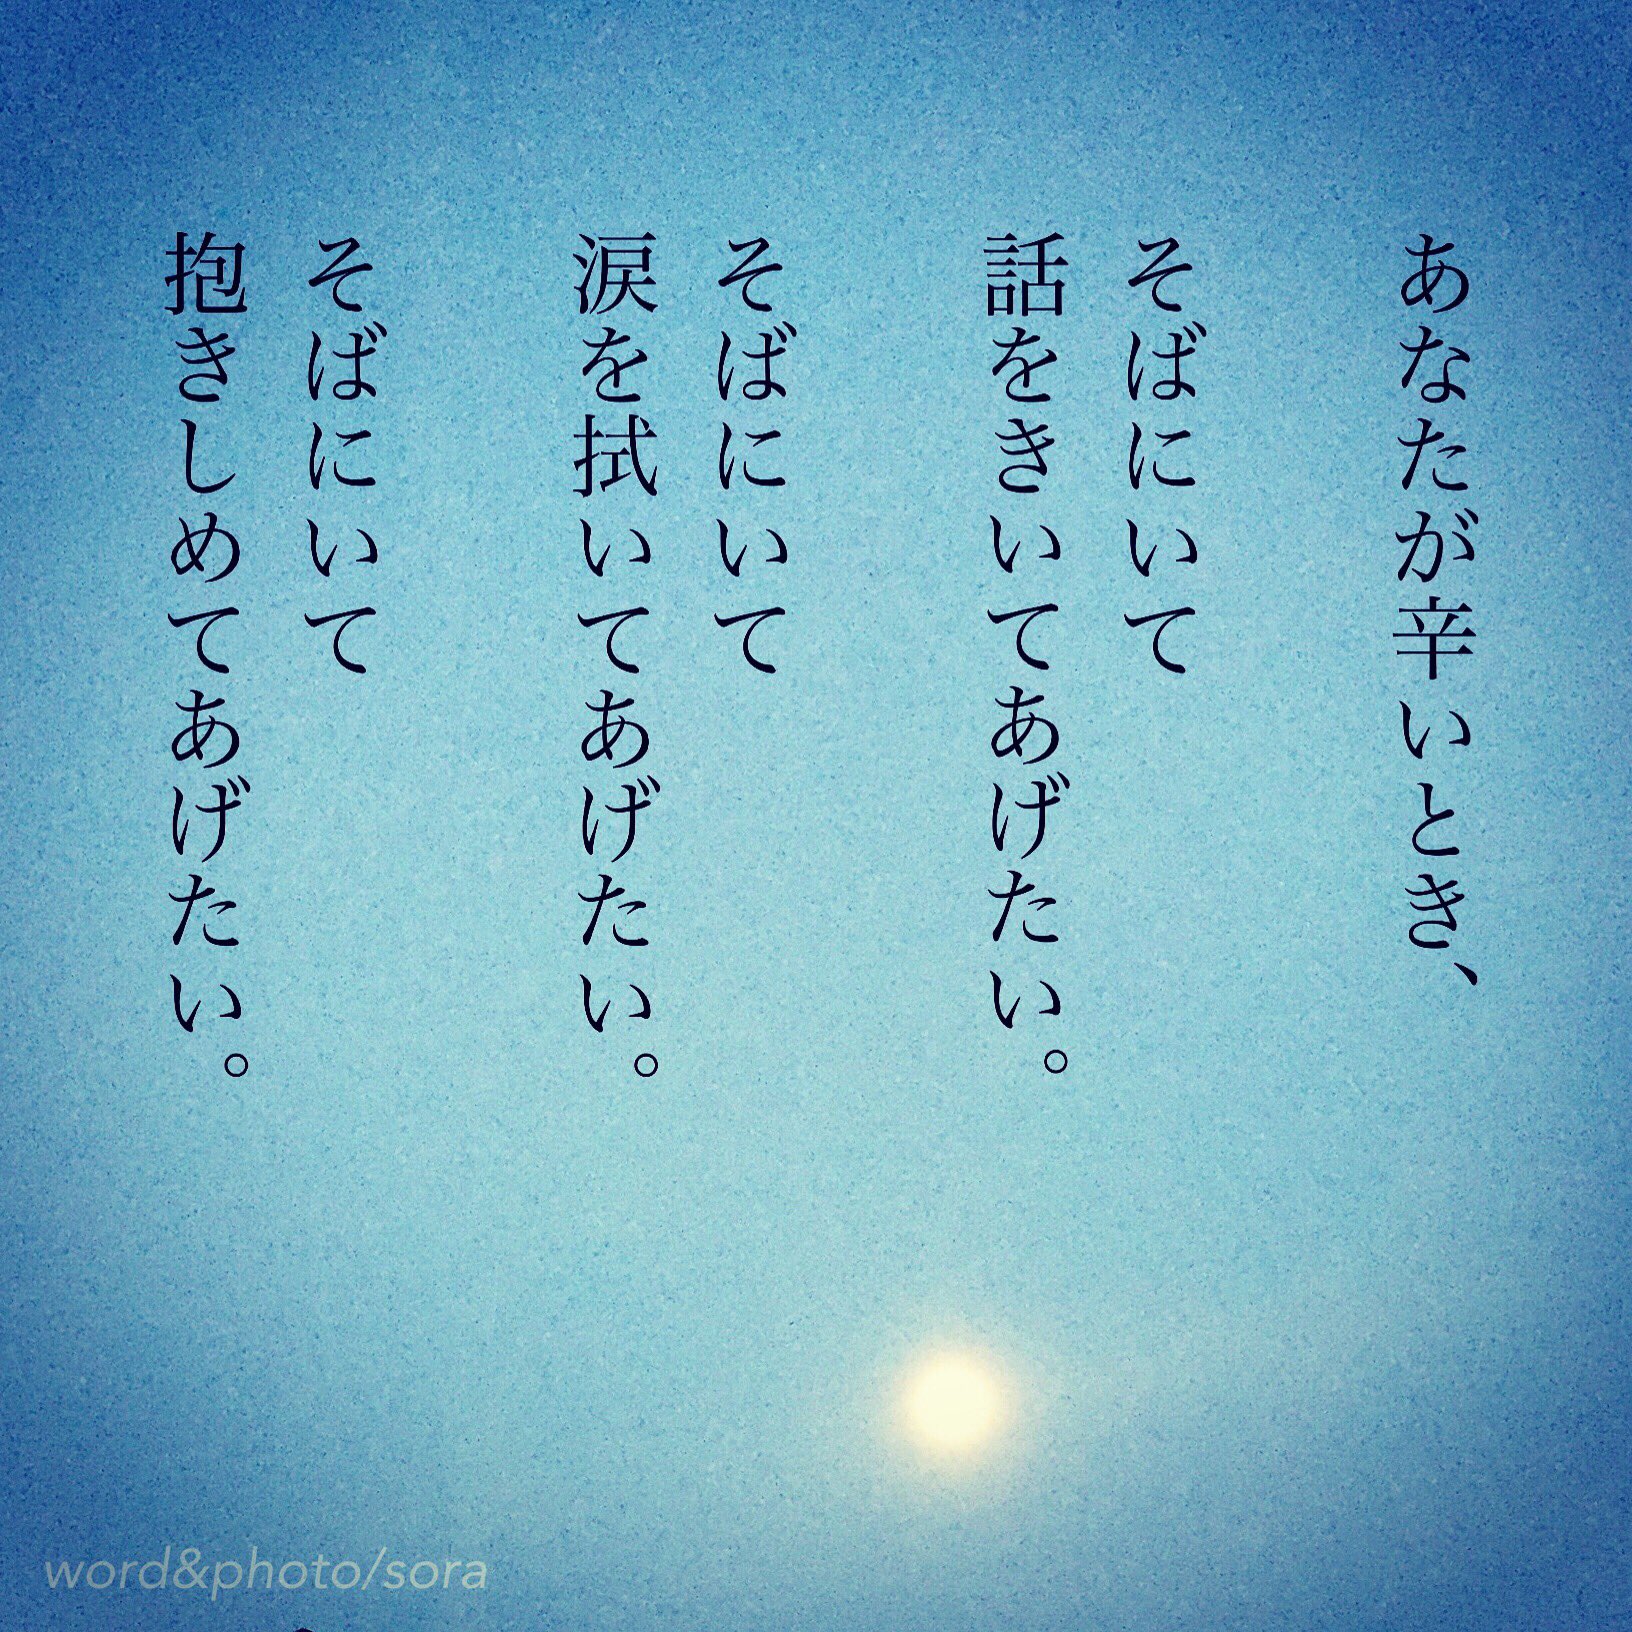 あなたが辛いとき、
そばにいて
話をきいてあげたい。
そばにいて
涙を拭いてあげたい。
そばにいて
抱きしめてあげたい。
word&photo/sora